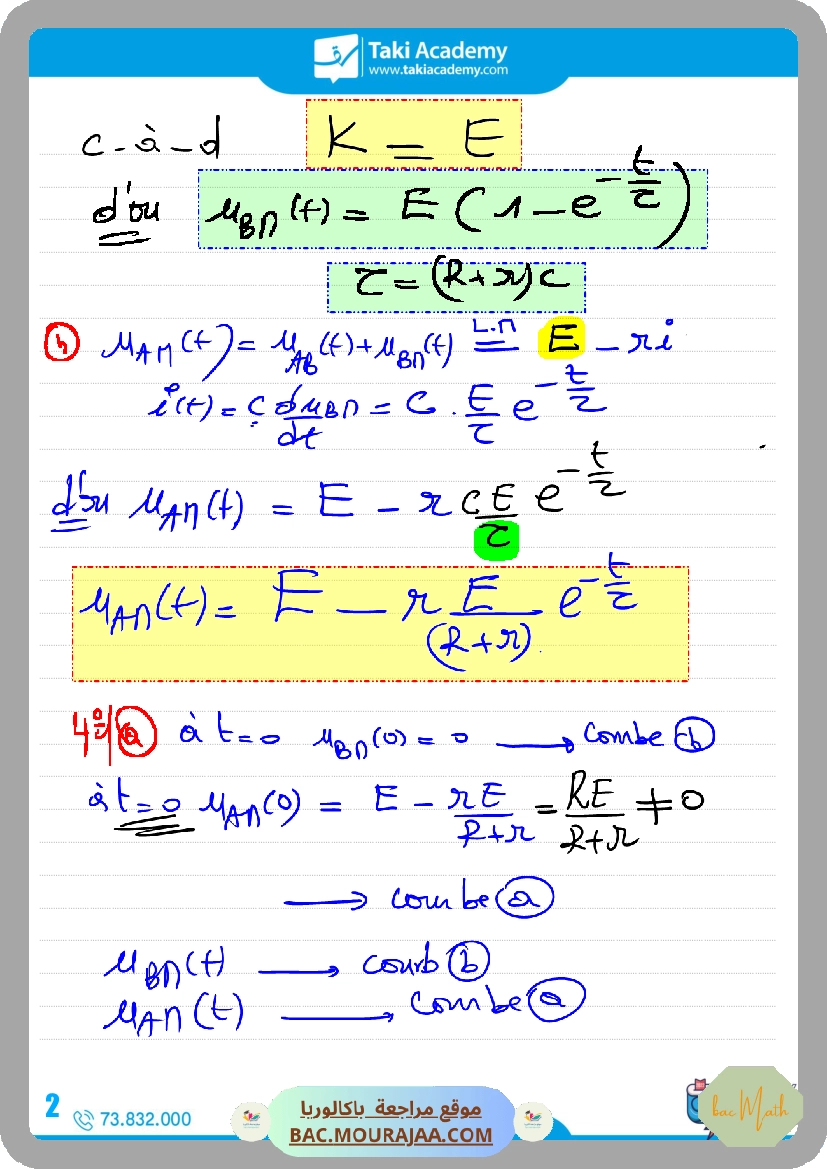 Taki Academy
www.takiacademy.com
c-à-d K = E
d'où u_BM(t) = E(1-e^(-t/τ))
τ = (R+r)C
b) u_AM(t) = u_AB(t)+u_BM(t) =(L.M) E - ri
i(t) = C du_BM/dt = C . E/τ e^(-t/τ)
d'où u_AM(t) = E - r CE/τ e^(-t/τ)
u_AM(t) = E - r E/(R+r) e^(-t/τ)
4°/ a) à t=0 u_BM(0) = 0 → combe b
à t=0 u_AM(0) = E - rE/R+r = RE/R+r ≠ 0
→ courbe a
u_BM(t) → courb b
u_AM(t) → combe a
2 73.832.000
موقع مراجعة باكالوريا
BAC.MOURAJAA.COM
bac Math